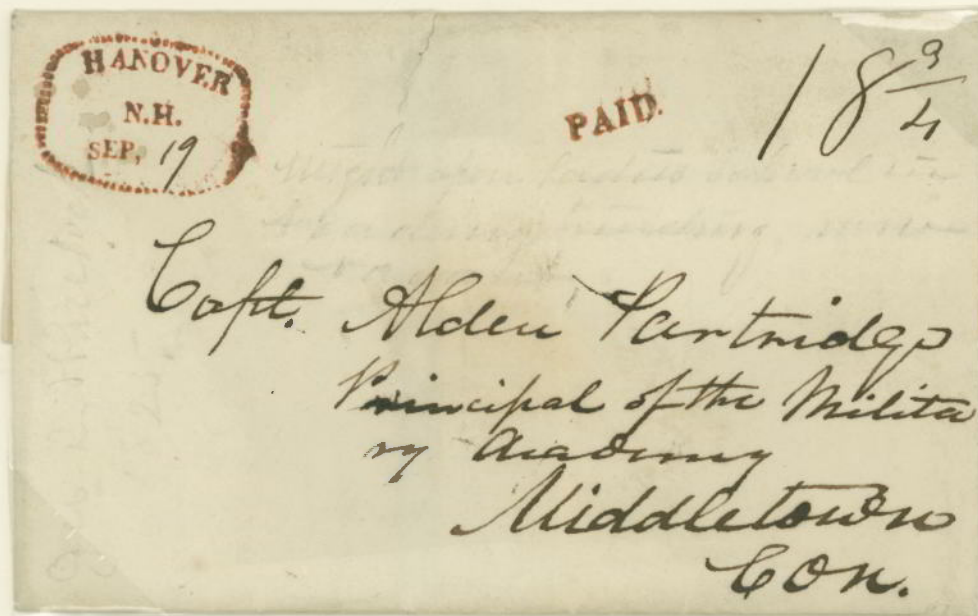 HANOVER
N.H.
SEP, 19
PAID.
18 3/4
Capt. Alden Partridge
Principal of the Milita
ry Academy
Middletown
Con.